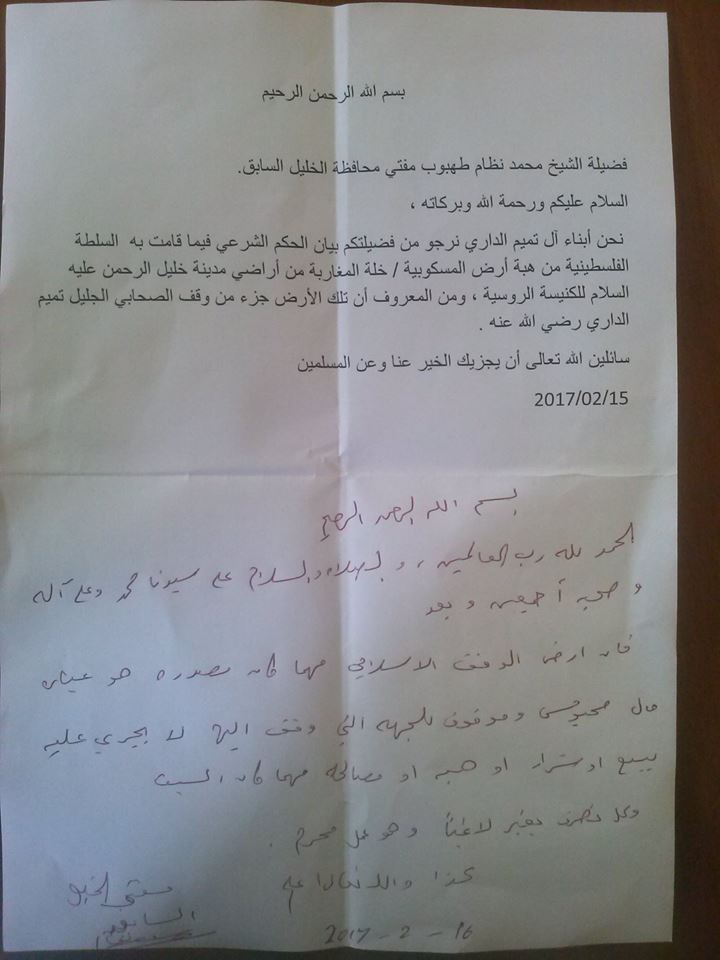 بسم الله الرحمن الرحيم
فضيلة الشيخ محمد نظام طهبوب مفتي محافظة الخليل السابق.
السلام عليكم ورحمة الله وبركاته ،
نحن أبناء آل تميم الداري نرجو من فضيلتكم بيان الحكم الشرعي فيما قامت به السلطة
الفلسطينية من هبة أرض المسكوبية / خلة المغاربة من أراضي مدينة خليل الرحمن عليه
السلام للكنيسة الروسية ، ومن المعروف أن تلك الأرض جزء من وقف الصحابي الجليل تميم
الداري رضي الله عنه .
سائلين الله تعالى أن يجزيك الخير عنا وعن المسلمين
2017/02/15
بسم الله الرحمن الرحيم
الحمد لله رب العالمين ، والصلاة والسلام على سيدنا محمد وعلى آله
وصحبه أجمعين وبعد
فان ارض الوقف الاسلامي مهما كان مصدره هو
مال محبوس وموقوف للجهة التي وقف اليها لا يجري عليه
بيع او شراء او هبه او مصالحة مهما كان السبب
وكل تصرف يعتبر لاغياً وهو عمل محرم .
هذا والله تعالى اعلم
مفتي الخليل
السابق
16 - 2 - 2017